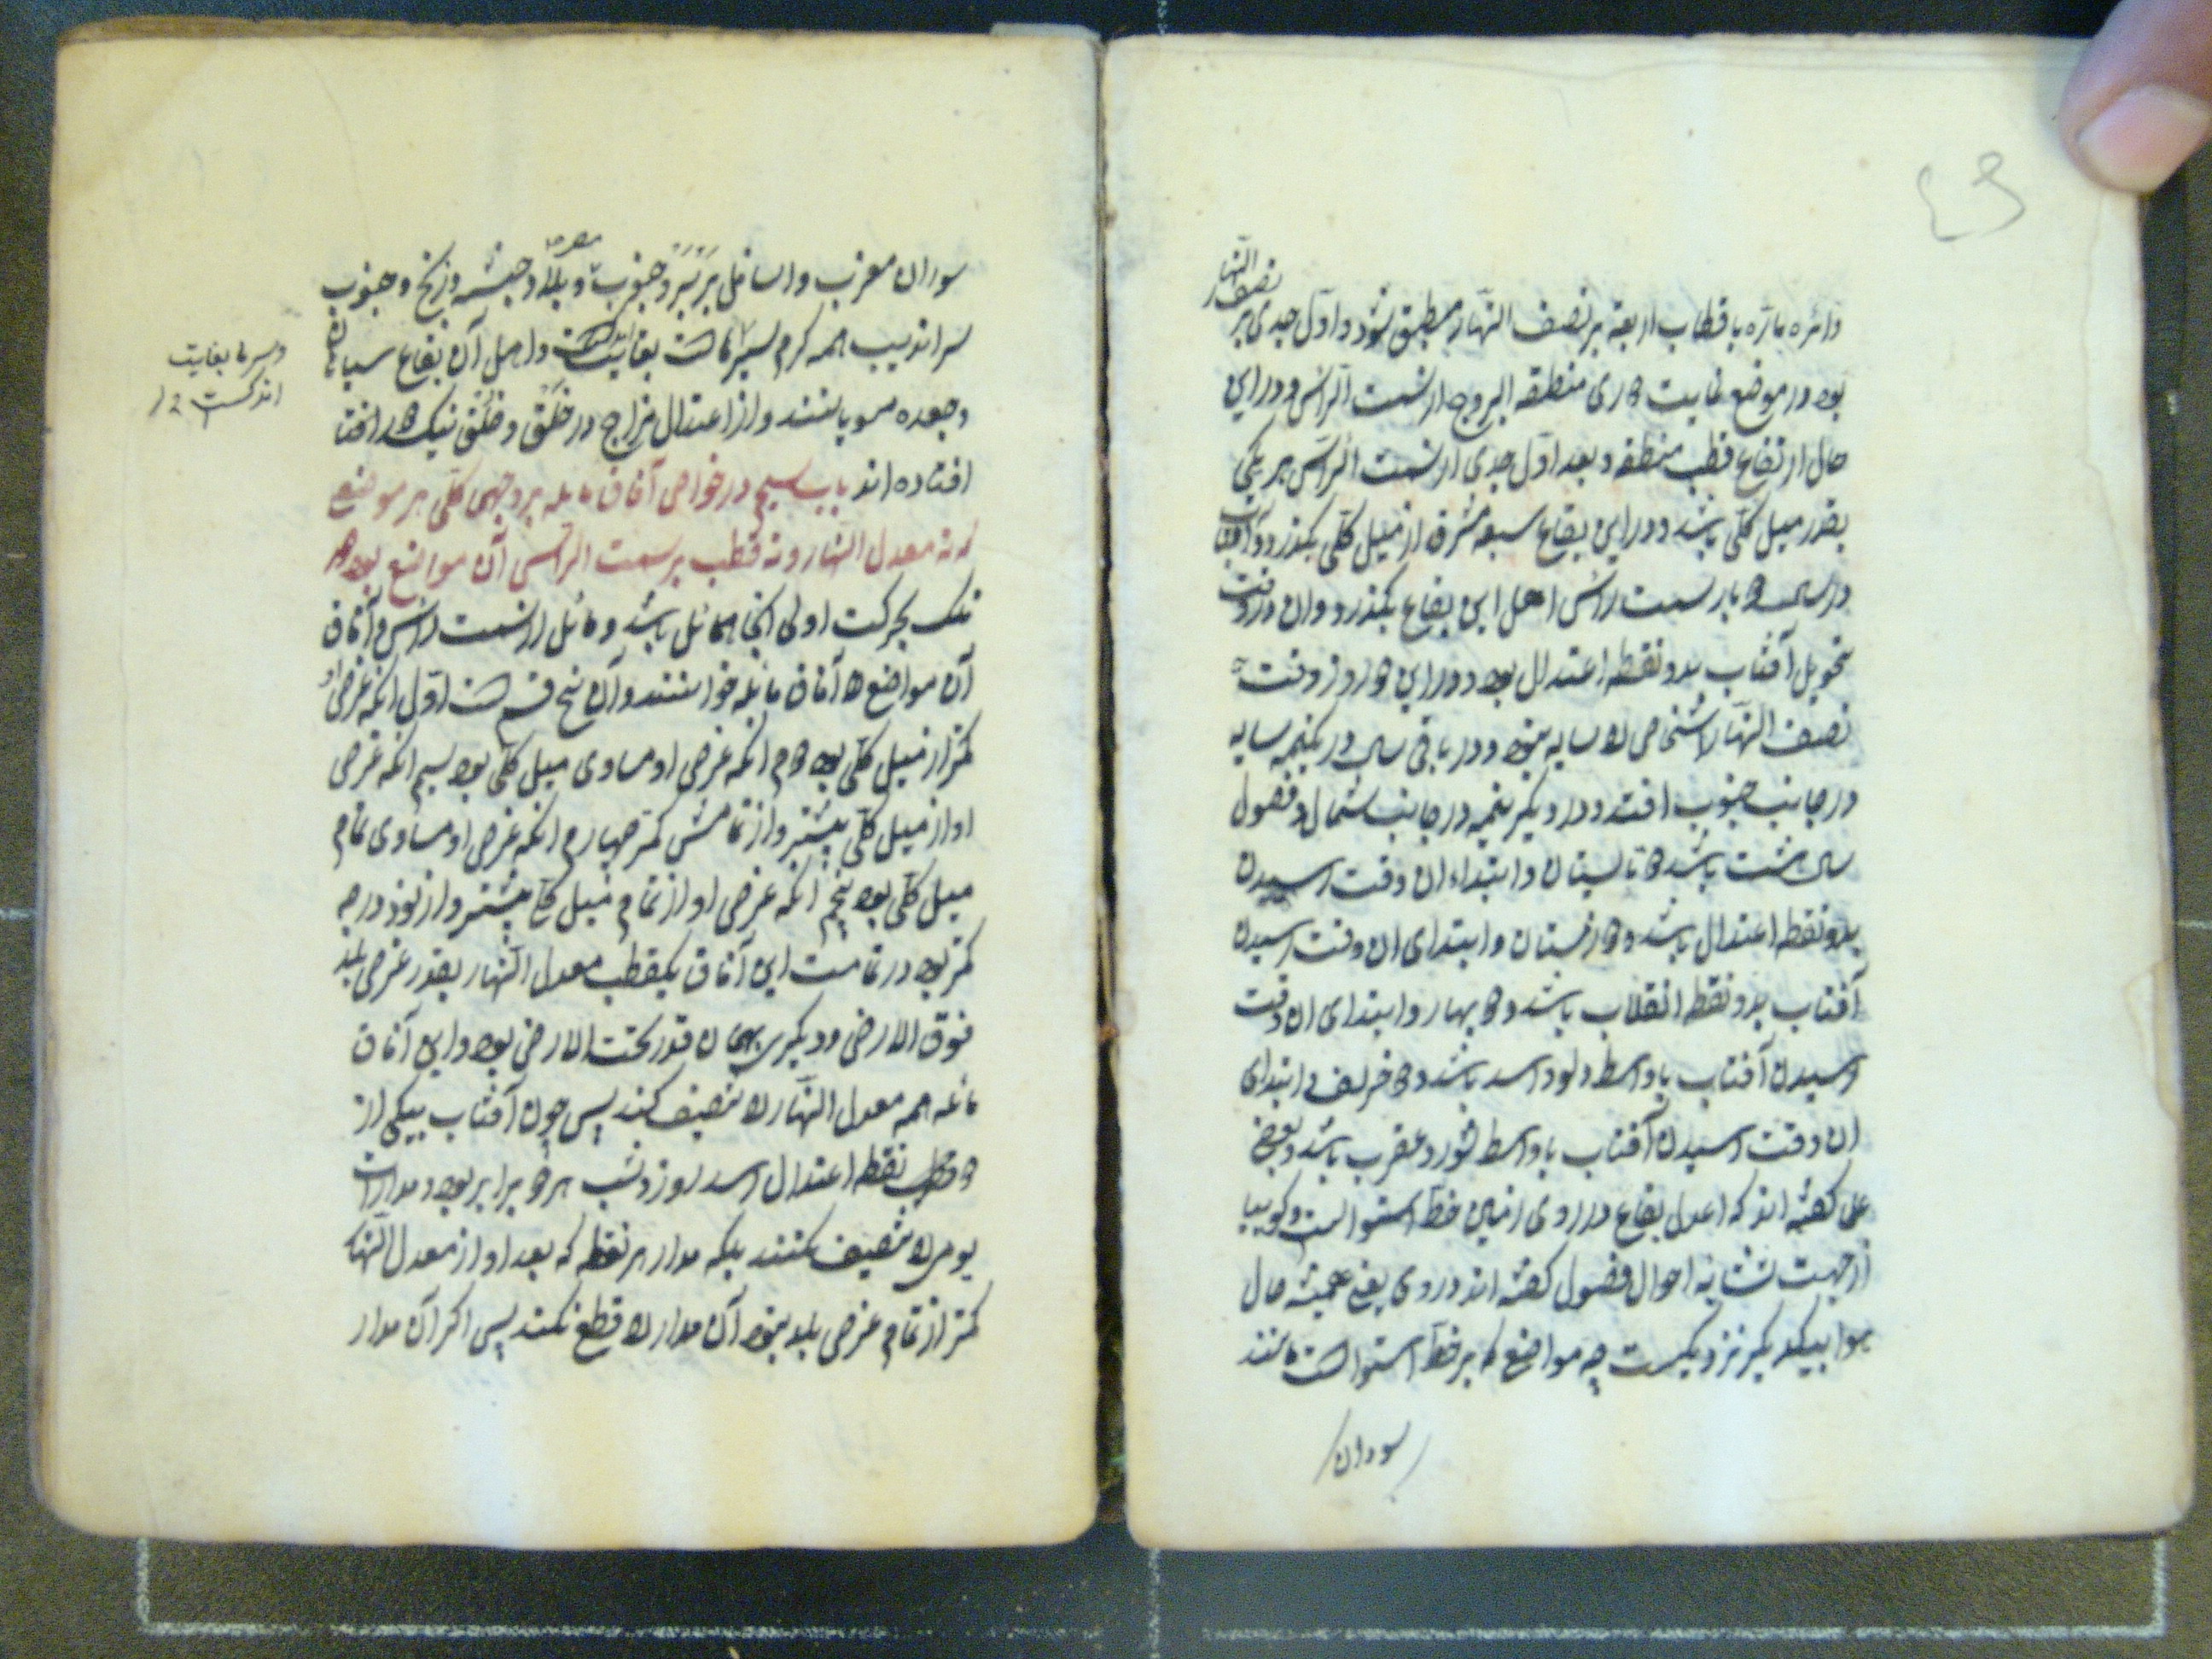 دائره ماره باقطاب اربعه بر نصف النهار منطبق شود و اول جدی بر نصف النهار
بود در موضع غایت دوری منطقه البروج از سمت الراس و در این
حال ارتفاع قطب منطقه و بعد اول جدی از سمت الراس هر یکی
بقدر میل کلی باشد و در این بقاع سبعه مشرقه از میل کلی بگذرد و آفتاب
در سالی دو بار بسمت راس اهل این بقاع بگذرد و ان در وقت
تحویل آفتاب بدو نقطه اعتدال بود و در این دو روز وقت
نصف النهار اشخاص را سایه نبود و در باقی سال در یکنیمه سایه
در جانب جنوب افتد و در دیگر نیمه در جانب شمال و فصول
سال هشت باشد دو تابستان و ابتداء ان وقت رسیدن
بدو نقطه اعتدال باشد و دو زمستان و ابتدای ان وقت رسیدن
آفتاب بدو نقطه انقلاب باشد و دو بهار و ابتدای ان وقت
رسیدن آفتاب باواسط دلو و اسد باشد و دو خریف و ابتدای
ان وقت رسیدن آفتاب باواسط ثور و عقرب باشد و بعضی
علما گفته اند که اعدل بقاع در روی زمین خط استوا است و گوییا
از جهت تشابه احوال فصول گفته اند در وی یعنی همیشه حال
هوا بیکدیگر نزدیکست چه مواضع که بر خط استوا است مانند
سودان
سودان مغرب و اسافل بربر و جنوب و بلاد حبشه و زنج و جنوب
سراندیب همه گرم سیر است بغایت و اهل آن بقاع سیاهان
و جعده مو باشند و از اعتدال مزاج در خلق و خلق نیک دور افتا
افتاده اند باب سیم در خواص آفاق مایله بر وجهی کلی هر موضع
که نه معدل النهار و نه قطب بر سمت الراس آن مواضع بود دور
فلک بحرکت اولی انجا مائل باشد و مائل از سمت راس و آفاق
آن مواضع را آفاق مائله خوانند و آن پنج قسم است اول انکه عرض او
کمتر از میل کلی بود دوم انکه عرض او مساوی میل کلی بود سیم انکه عرض
او از میل کلی بیشتر و از تمامش کمتر چهارم انکه عرض او مساوی تمام
میل کلی بود پنجم انکه عرض او از تمام میل کلی بیشتر و از نود درجه
کمتر بود در تمامت این آفاق یکقطب معدل النهار بقدر عرض بلد
فوق الارض و دیگری بهمان قدر تحت الارض بود و این آفاق
مائله همه معدل النهار را تنصیف کند پس چون آفتاب بیکی از
دو نقطه اعتدال رسد روز و شب هر دو برابر بود و مدارات
یومی را تنصیف نکنند بلکه مدار هر نقطه که بعد او از معدل النها
کمتر از تمام عرض بلد نبود آن مدار را قطع نکند پس اگر آن مدار
و سرما بغایت
اندکست